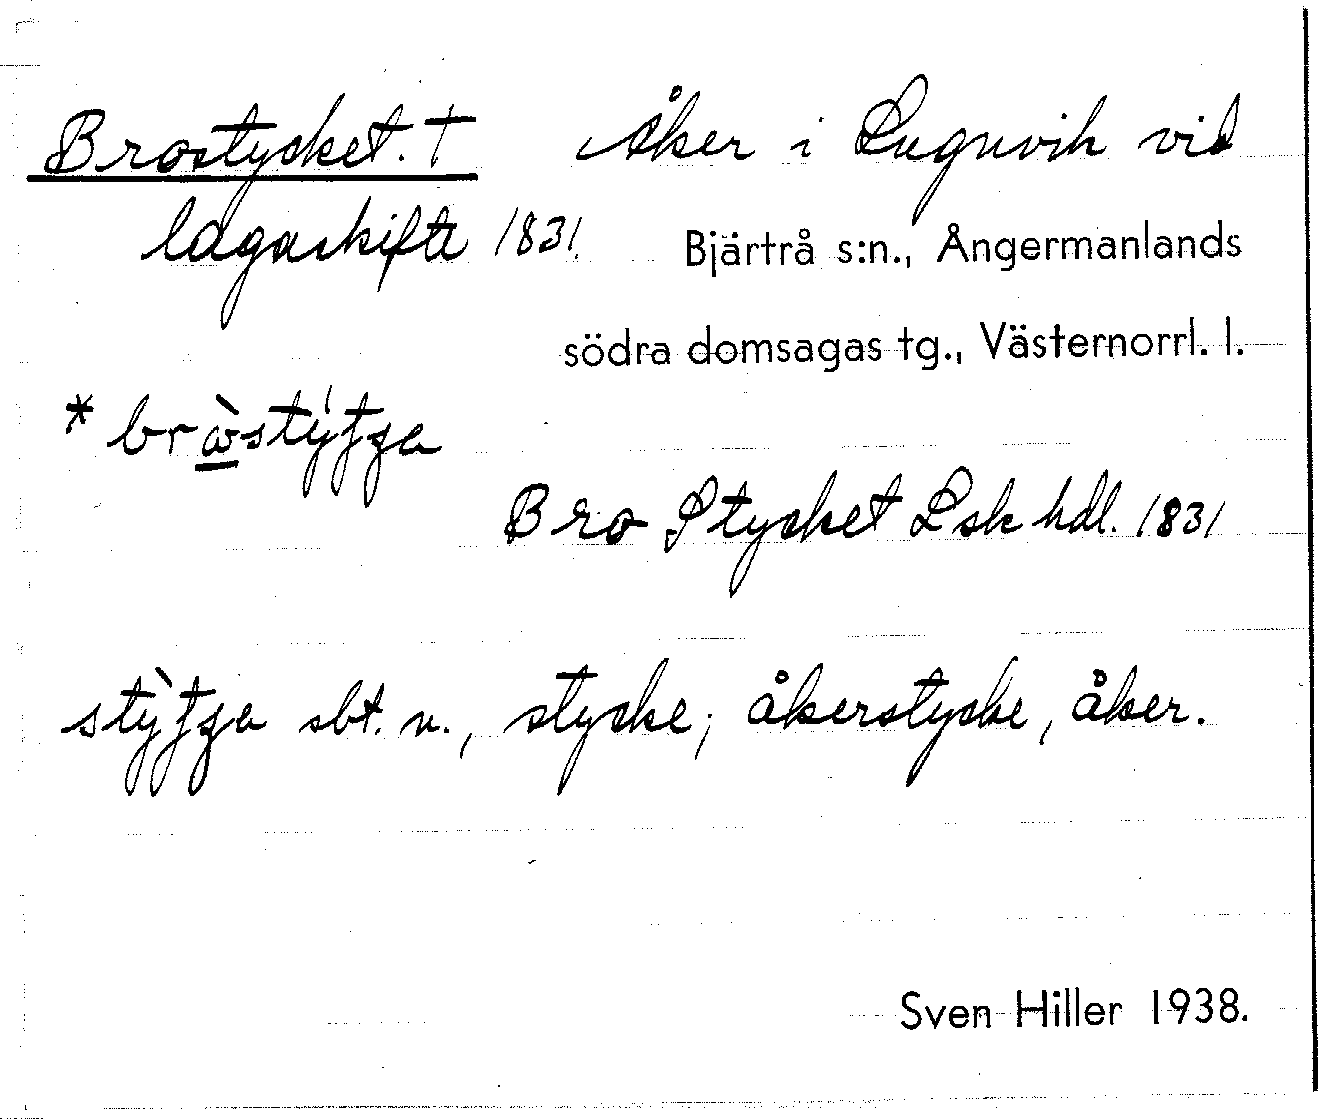 Brostycket. † Åker i Lugnvik vid
lagaskifte 1831. Bjärtrå s:n., Ångermanlands
södra domsagas tg., Västernorrl. l.
Bro Stycket Lsk hdl. 1831
sbt. n., stycke; åkerstycke, åker.
Sven Hiller 1938.